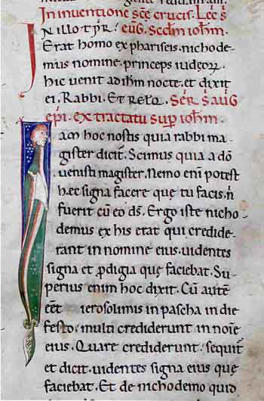 In inventione sc̄e crucis. Lec̄ s̄
IN illo tp̄r. euḡ. Scdm̄ ioh̄m.
Erat homo ex phariseis. nichode-
mus nomine. princeps iudeoꝝ.
hic uenit ad ih̄m nocte. et dixit
ei. Rabbi. Et rel̄a. Ser̄ S̄ auḡ
ep̄i. ex tractatu sup ioh̄m.
Iam hoc nostis quia rabbi ma-
gister dicit̄. Scimus quia a dō
uenisti magister. Nemo enī potest
hęc signa facere quę tu facis. n̄
fuerit cū eo ds̄. Ergo iste nicho-
demus ex his erat qui credide-
rant in nomine eius. uidentes
signa et ꝓdigia quę faciebat. Su-
perius enim hoc dixit. Cū autē
eēt ierosolimis in pascha in die
festo. multi crediderunt in noīe
eius. Quare crediderunt. sequit̄
et dicit. uidentes signa eius quę
faciebat. Et de nichodemo quid